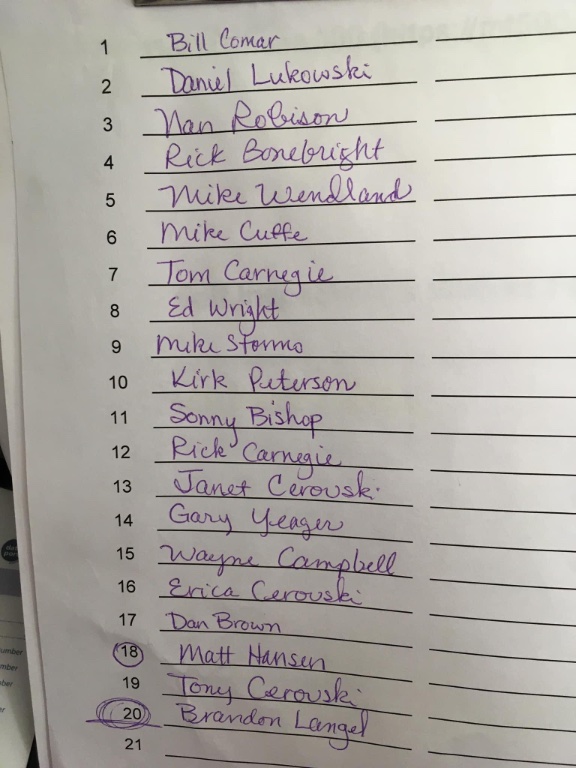 1 Bill Comar
2 Daniel Lukowski
3 Nan Robison
4 Rick Bonebright
5 Mike Wendland
6 Mike Cuffe
7 Tom Carnegie
8 Ed Wright
9 Mike Stormo
10 Kirk Peterson
11 Sonny Bishop
12 Rick Carnegie
13 Janet Cerovski
14 Gary Yeager
15 Wayne Campbell
16 Erica Cerovski
17 Dan Brown
18 Matt Hansen
19 Tony Cerovski
20 Brandon Langel
21